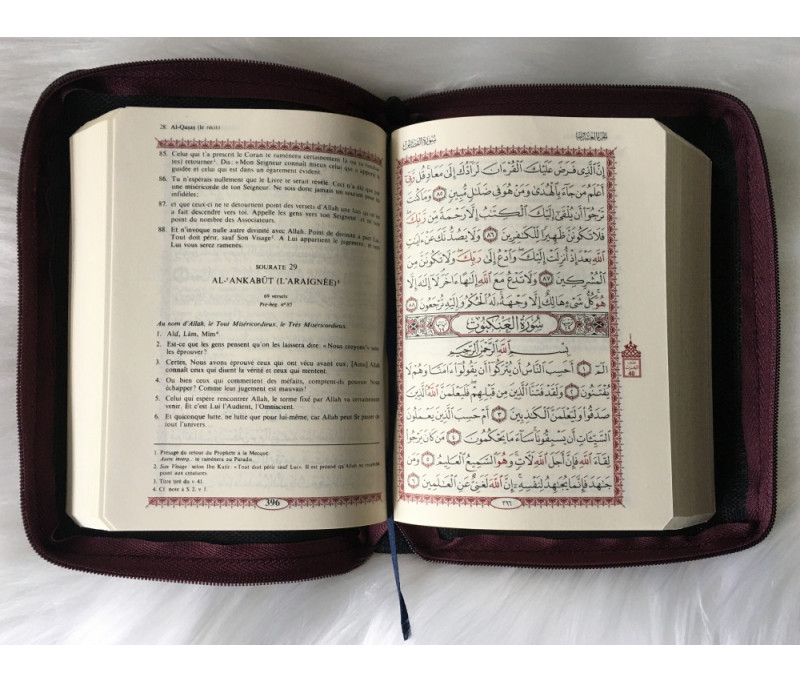 28. Al-Qasas (le récit)
85. Celui qui t'a prescrit le Coran te ramènera certainement là où tu (sou-
ras) retourner¹. Dis: «Mon Seigneur connaît mieux celui qui a apporté
guidée et celui qui est dans un égarement évident.
86. Tu n'espérais nullement que le Livre te serait révélé. Ceci n'a été que
une miséricorde de ton Seigneur. Ne sois donc jamais un soutien pour
infidèles;
87. et que ceux-ci ne te détournent point des versets d'Allah une fois qu'on
a fait descendre vers toi. Appelle les gens vers ton Seigneur et ne sois
point du nombre des Associateurs.
88. Et n'invoque nulle autre divinité avec Allah. Point de divinité à part Lui.
Tout doit périr, sauf Son Visage². A Lui appartient le jugement; et vers
Lui vous serez ramenés.
SOURATE 29
AL-ʿANKABŪT (L'ARAIGNÉE)³
69 versets
Pré-hég. n° 85
Au nom d'Allah, le Tout Miséricordieux, le Très Miséricordieux.
1. Alif, Lām, Mīm⁴.
2. Est-ce que les gens pensent qu'on les laissera dire: «Nous croyons» sans
les éprouver?
3. Certes, Nous avons éprouvé ceux qui ont vécu avant eux; [Ainsi] Allah
connaît ceux qui disent la vérité et ceux qui mentent.
4. Ou bien ceux qui commettent des méfaits, comptent-ils pouvoir Nous
échapper? Comme leur jugement est mauvais!
5. Celui qui espère rencontrer Allah, le terme fixé par Allah va certainement
venir. Et c'est Lui l'Audient, l'Omniscient.
6. Et quiconque lutte, ne lutte que pour lui-même, car Allah peut Se passer de
tout l'univers.
1. Présage du retour du Prophète à la Mecque.
Autre interp.: te ramènera au Paradis.
2. Son Visage: selon Ibn Kaṯīr: «Tout doit périr sauf Lui». Il est prouvé qu'Allah ne ressemble
point aux créatures.
3. Titre tiré du v. 41.
4. Cf. note à S. 2, v. 1.
396
سورة القصص
الجزء العشرون
إِنَّ الَّذِي فَرَضَ عَلَيْكَ الْقُرْءَانَ لَرَادُّكَ إِلَىٰ مَعَادٍ قُل رَّبِّي
أَعْلَمُ مَن جَاءَ بِالْهُدَىٰ وَمَنْ هُوَ فِي ضَلَالٍ مُّبِينٍ ٨٥ وَمَا كُنتَ
تَرْجُوا أَن يُلْقَىٰ إِلَيْكَ الْكِتَابُ إِلَّا رَحْمَةً مِّن رَّبِّكَ
فَلَا تَكُونَنَّ ظَهِيرًا لِّلْكَافِرِينَ ٨٦ وَلَا يَصُدُّنَّكَ عَنْ ءَايَاتِ
اللَّهِ بَعْدَ إِذْ أُنزِلَتْ إِلَيْكَ وَادْعُ إِلَىٰ رَبِّكَ وَلَا تَكُونَنَّ مِنَ
الْمُشْرِكِينَ ٨٧ وَلَا تَدْعُ مَعَ اللَّهِ إِلَٰهًا ءَاخَرَ لَا إِلَٰهَ إِلَّا
هُوَ كُلُّ شَيْءٍ هَالِكٌ إِلَّا وَجْهَهُ لَهُ الْحُكْمُ وَإِلَيْهِ تُرْجَعُونَ ٨٨
سُورَةُ الْعَنْكَبُوتِ
بِسْمِ اللَّهِ الرَّحْمَٰنِ الرَّحِيمِ
الٓمٓ ١ أَحَسِبَ النَّاسُ أَن يُتْرَكُوا أَن يَقُولُوا ءَامَنَّا وَهُمْ لَا
يُفْتَنُونَ ٢ وَلَقَدْ فَتَنَّا الَّذِينَ مِن قَبْلِهِمْ فَلَيَعْلَمَنَّ اللَّهُ الَّذِينَ
صَدَقُوا وَلَيَعْلَمَنَّ الْكَاذِبِينَ ٣ أَمْ حَسِبَ الَّذِينَ يَعْمَلُونَ
السَّيِّئَاتِ أَن يَسْبِقُونَا سَاءَ مَا يَحْكُمُونَ ٤ مَن كَانَ يَرْجُوا
لِقَاءَ اللَّهِ فَإِنَّ أَجَلَ اللَّهِ لَآتٍ وَهُوَ السَّمِيعُ الْعَلِيمُ ٥ وَمَن
جَاهَدَ فَإِنَّمَا يُجَاهِدُ لِنَفْسِهِ إِنَّ اللَّهَ لَغَنِيٌّ عَنِ الْعَالَمِينَ ٦
٣٩٦